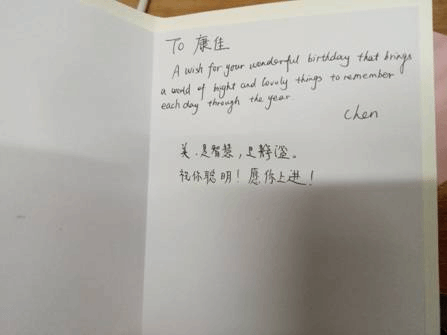 To 康佳
A wish for your wonderful birthday that brings
a world of bright and lovely things to remember
each day through the year
Chen
美.是智慧,是静谧。
祝你聪明!愿你上进!